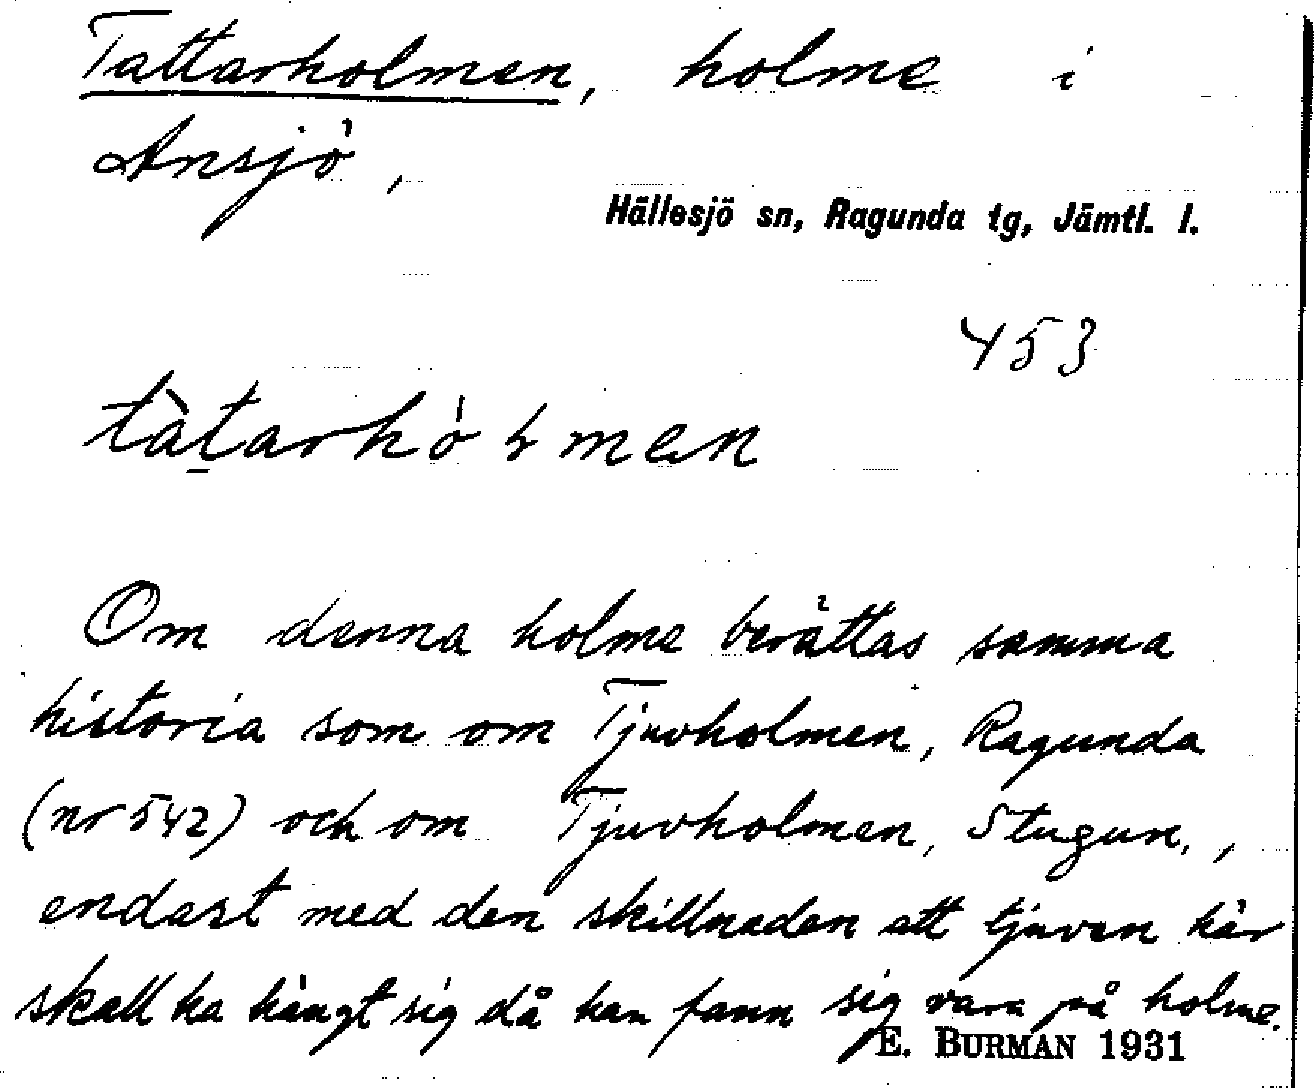 Tattarholmen, holme i
Ansjö,
Hällesjö sn, Ragunda tg, Jämtl. l.
453
tàtarhò ɫmen
Om denna holme berättas samma
historia som om Tjuvholmen, Ragunda
(nr 542) och om Tjuvholmen, Stugun,,
endast med den skillnaden att tjuven här
skall ha hängt sig då han fann sig vara på holme.
E. BURMAN 1931